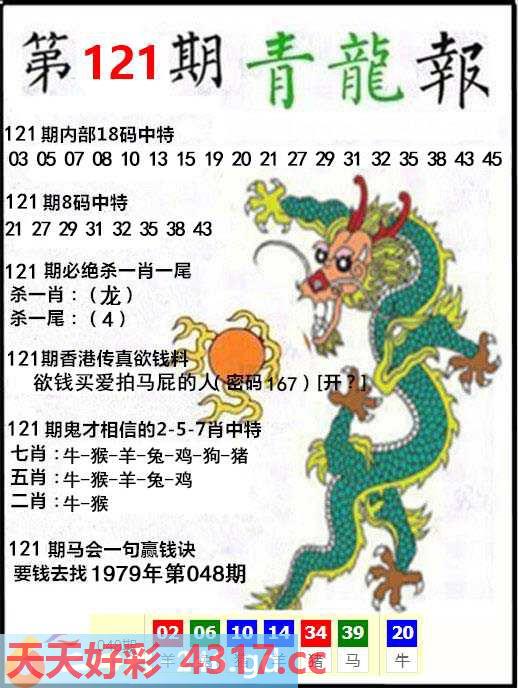 第121期青龍報
121期内部18码中特
03 05 07 08 10 13 15 19 20 21 27 29 31 32 35 38 43 45
121期8码中特
21 27 29 31 32 35 38 43
121期必绝杀一肖一尾
杀一肖：（龙）
杀一尾：（4）
121期香港传真欲钱料
欲钱买爱拍马屁的人（密码167）[开？]
121期鬼才相信的2-5-7肖中特
七肖：牛-猴-羊-兔-鸡-狗-猪
五肖：牛-猴-羊-兔-鸡
二肖：牛-猴
121期马会一句赢钱诀
要钱去找1979年第048期
02 06 10 14 34 39 20
猪 马 牛
天天好彩 4317.cc